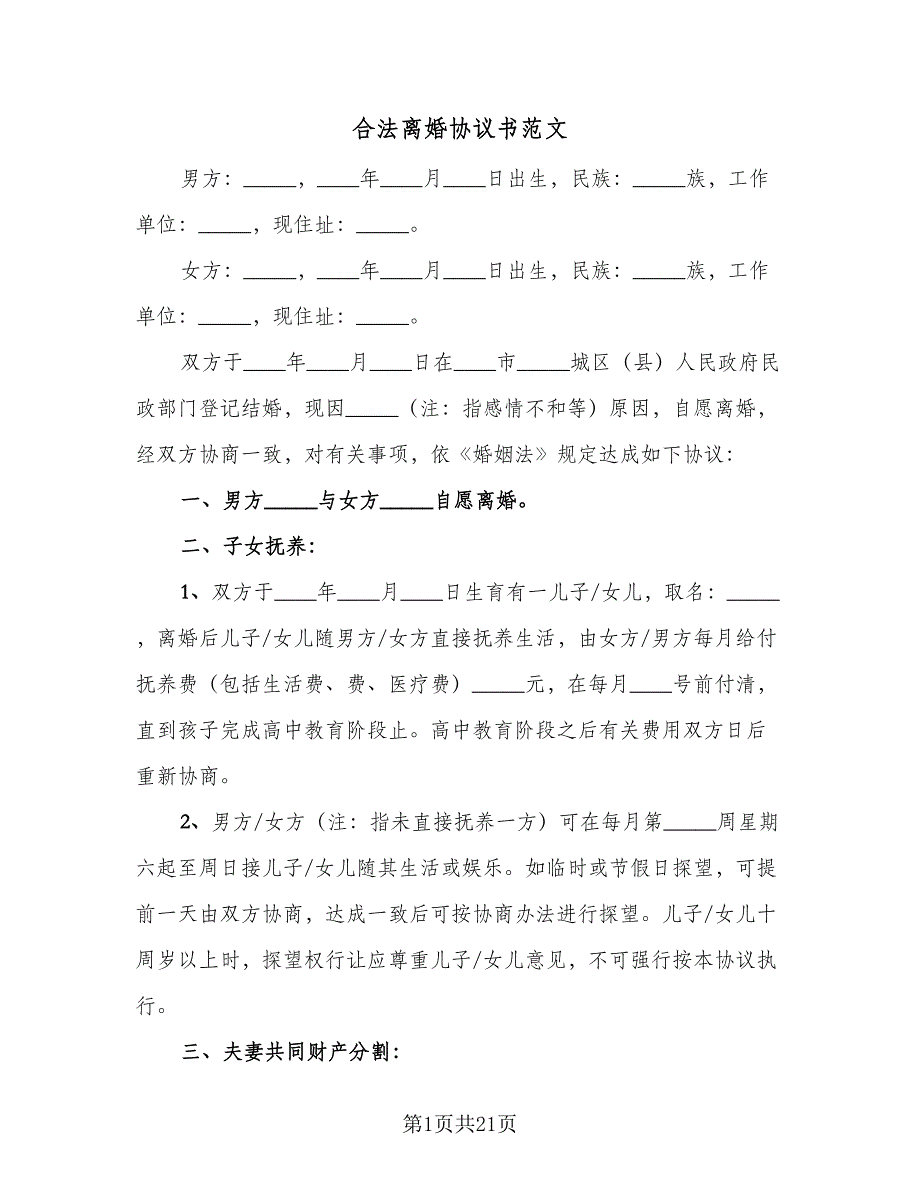 合法离婚协议书范文
男方：_____，____年____月____日出生，民族：_____族，工作
单位：_____，现住址：_____。
女方：_____，____年____月____日出生，民族：_____族，工作
单位：_____，现住址：_____。
双方于____年____月____日在____市_____城区（县）人民政府民
政部门登记结婚，现因_____（注：指感情不和等）原因，自愿离婚，
经双方协商一致，对有关事项，依《婚姻法》规定达成如下协议：
一、男方_____与女方_____自愿离婚。
二、子女抚养：
1、双方于____年____月____日生育有一儿子/女儿，取名：_____
，离婚后儿子/女儿随男方/女方直接抚养生活，由女方/男方每月给付
抚养费（包括生活费、费、医疗费）_____元，在每月____号前付清，
直到孩子完成高中教育阶段止。高中教育阶段之后有关费用双方日后
重新协商。
2、男方/女方（注：指未直接抚养一方）可在每月第_____周星期
六起至周日接儿子/女儿随其生活或娱乐。如临时或节假日探望，可提
前一天由双方协商，达成一致后可按协商办法进行探望。儿子/女儿十
周岁以上时，探望权行让应尊重儿子/女儿意见，不可强行按本协议执
行。
三、夫妻共同财产分割：
第1页共21页